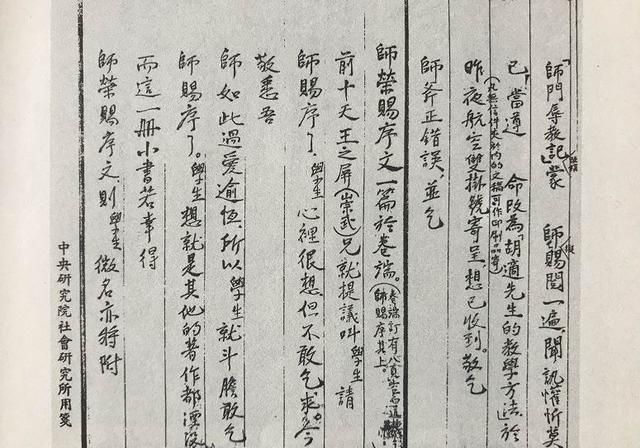 「師門辱教記」蒙 師賜閱一遍,聞訊懽忻莫
已,當遵 命改為「胡適先生的教學方法」於
昨夜航空與掛號寄呈,想已收到。敬乞
師斧正錯誤,並乞
師榮賜序文一篇於卷端。
師賜序其上。
前十天王之屏(崇武)兄就提議叫學生請
師賜序了,學生心裡很想,但不敢乞求。今
敬悉吾
師如此過愛逾恆,所以學生就斗膽敢乞
師賜序了。學生想就是其他的著作都湮沒
而這一冊小書若幸得
師榮賜序文,則學生微名亦將附
中央研究院社會研究所用箋